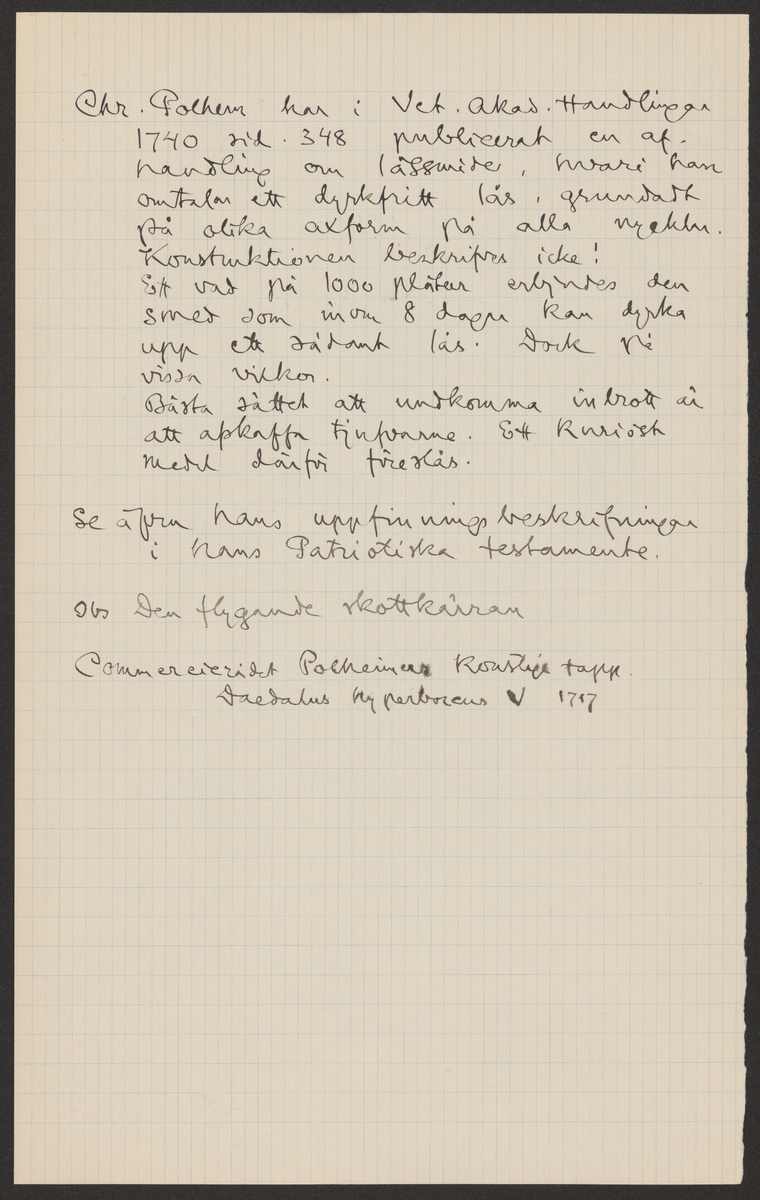 Chr. Polhem har i Vet. Akad. Handlingar
1740 sid. 348 publicerat en af-
handling om låssmide, hvari han
omtalar ett dyrkfritt lås, grundadt
på olika axform på alla nycklar.
Konstruktionen beskrifves icke!
Ett vad på 1000 plåtar erbjudes den
smed som inom 8 dagar kan dyrka
upp ett sådant lås. Dock på
vissa vilkor.
Bästa sättet att undkomma inbrott är
att afskaffa tjufvarne. Ett kuriöst
medel därför föreslås.
Se äfven hans uppfinningsbeskrifningar
i hans Patriotiska testamente.
Obs Den flygande skottkärran
Commercierådet Polheimers Konstige tapp.
Daedalus Hyperboreus V 1717